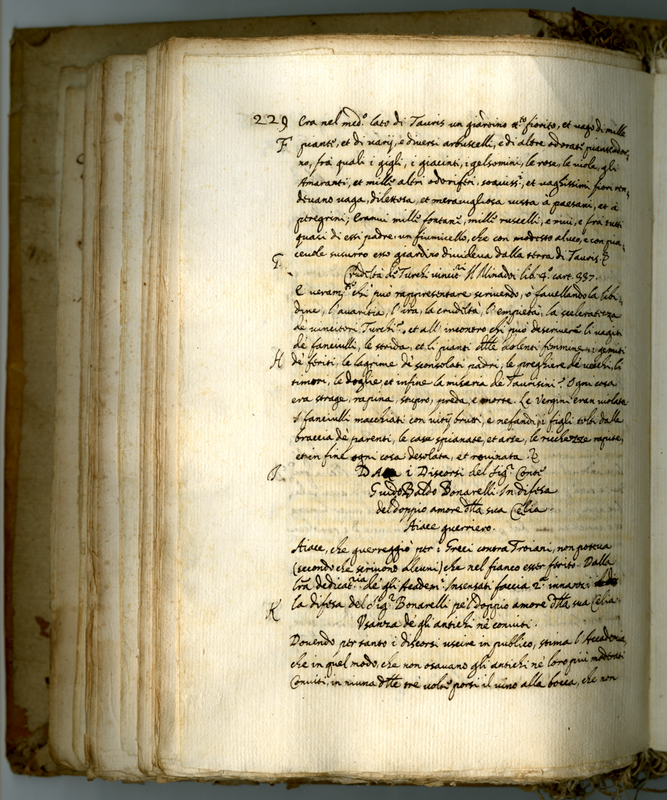 229 Era nel med.º lato di Tauris un giardino fiorito, et vago di mille
F piante, et di varij, e diversi arbuscelli, e di altre odorate piante ador-
no, frà quali i gigli, i giacinti, i gelsomini, le rose, le viole, gli
Amaranti, et mille altri odoriferi, soavissi.i et vaghissimi fiori ren-
devano vaga, dilettosa, et meravigliosa vista à paesani, et à
peregrini; Eranvi mille fontane, mille ruscelli, e rivi, e frà tutti
quasi di essi padre, un fiumicello, che con modesto alveo, e con pia-
cevole susurro esso giardino divideva dalla terra di Tauris.
G Crudeltà de Turchi vincit.ri Il Minadoi lib. 4.º cart. 337.
E veram.te chi può rappresentare scrivendo, o favellando la libi-
dine, l'avaritia, l'ira, la crudeltà, l'empietà, la sceleratezza
de' vincitori Turchi, et all'incontro chi può descrivere li vagiti
de' fanciulli, le strida, et li pianti dlle dolenti femmine, i gemiti
H de' feriti, le lagrime de' sconsolati padri, le preghiere de' vecchi, li
timori, le doglie, et infine la miseria de' Taurisini? Ogni cosa
era strage, rapina, stupro, preda, e morte. Le Vergini eran violate
i fanciulli macchiati con vitij brutti, e nefandi, i figli tolti dalle
braccia de' parenti, le case spianate, et arse, le ricchezze rapite,
et in fine ogni cosa desolata, et rovinata.
I Da i Discorsi del Sig.r Conte
Guido Baldo Bonarelli In difesa
del doppio amore dlla sua Celia.
Aiace guerriero.
Aiace, che guerreggiò per i Greci contra Troiani, non poteva
(secondo che scrivono alcuni) che nel fianco esser ferito. Dalla
lra dedicat.ria de gli Academ.i Insensati faccia 2.ª innanzi
la difesa del Sig.r Bonarelli pel doppio amore dlla sua Celia.
K Usanza de gli antichi ne' conviti.
Dovendo per tanto i discorsi uscire in publico, stima l'Accademia,
che in quel modo, che non osavano gli antichi ne' loro più moderati
Conviti, in niuna dlle trè volte porsi il vino alla bocca, che non